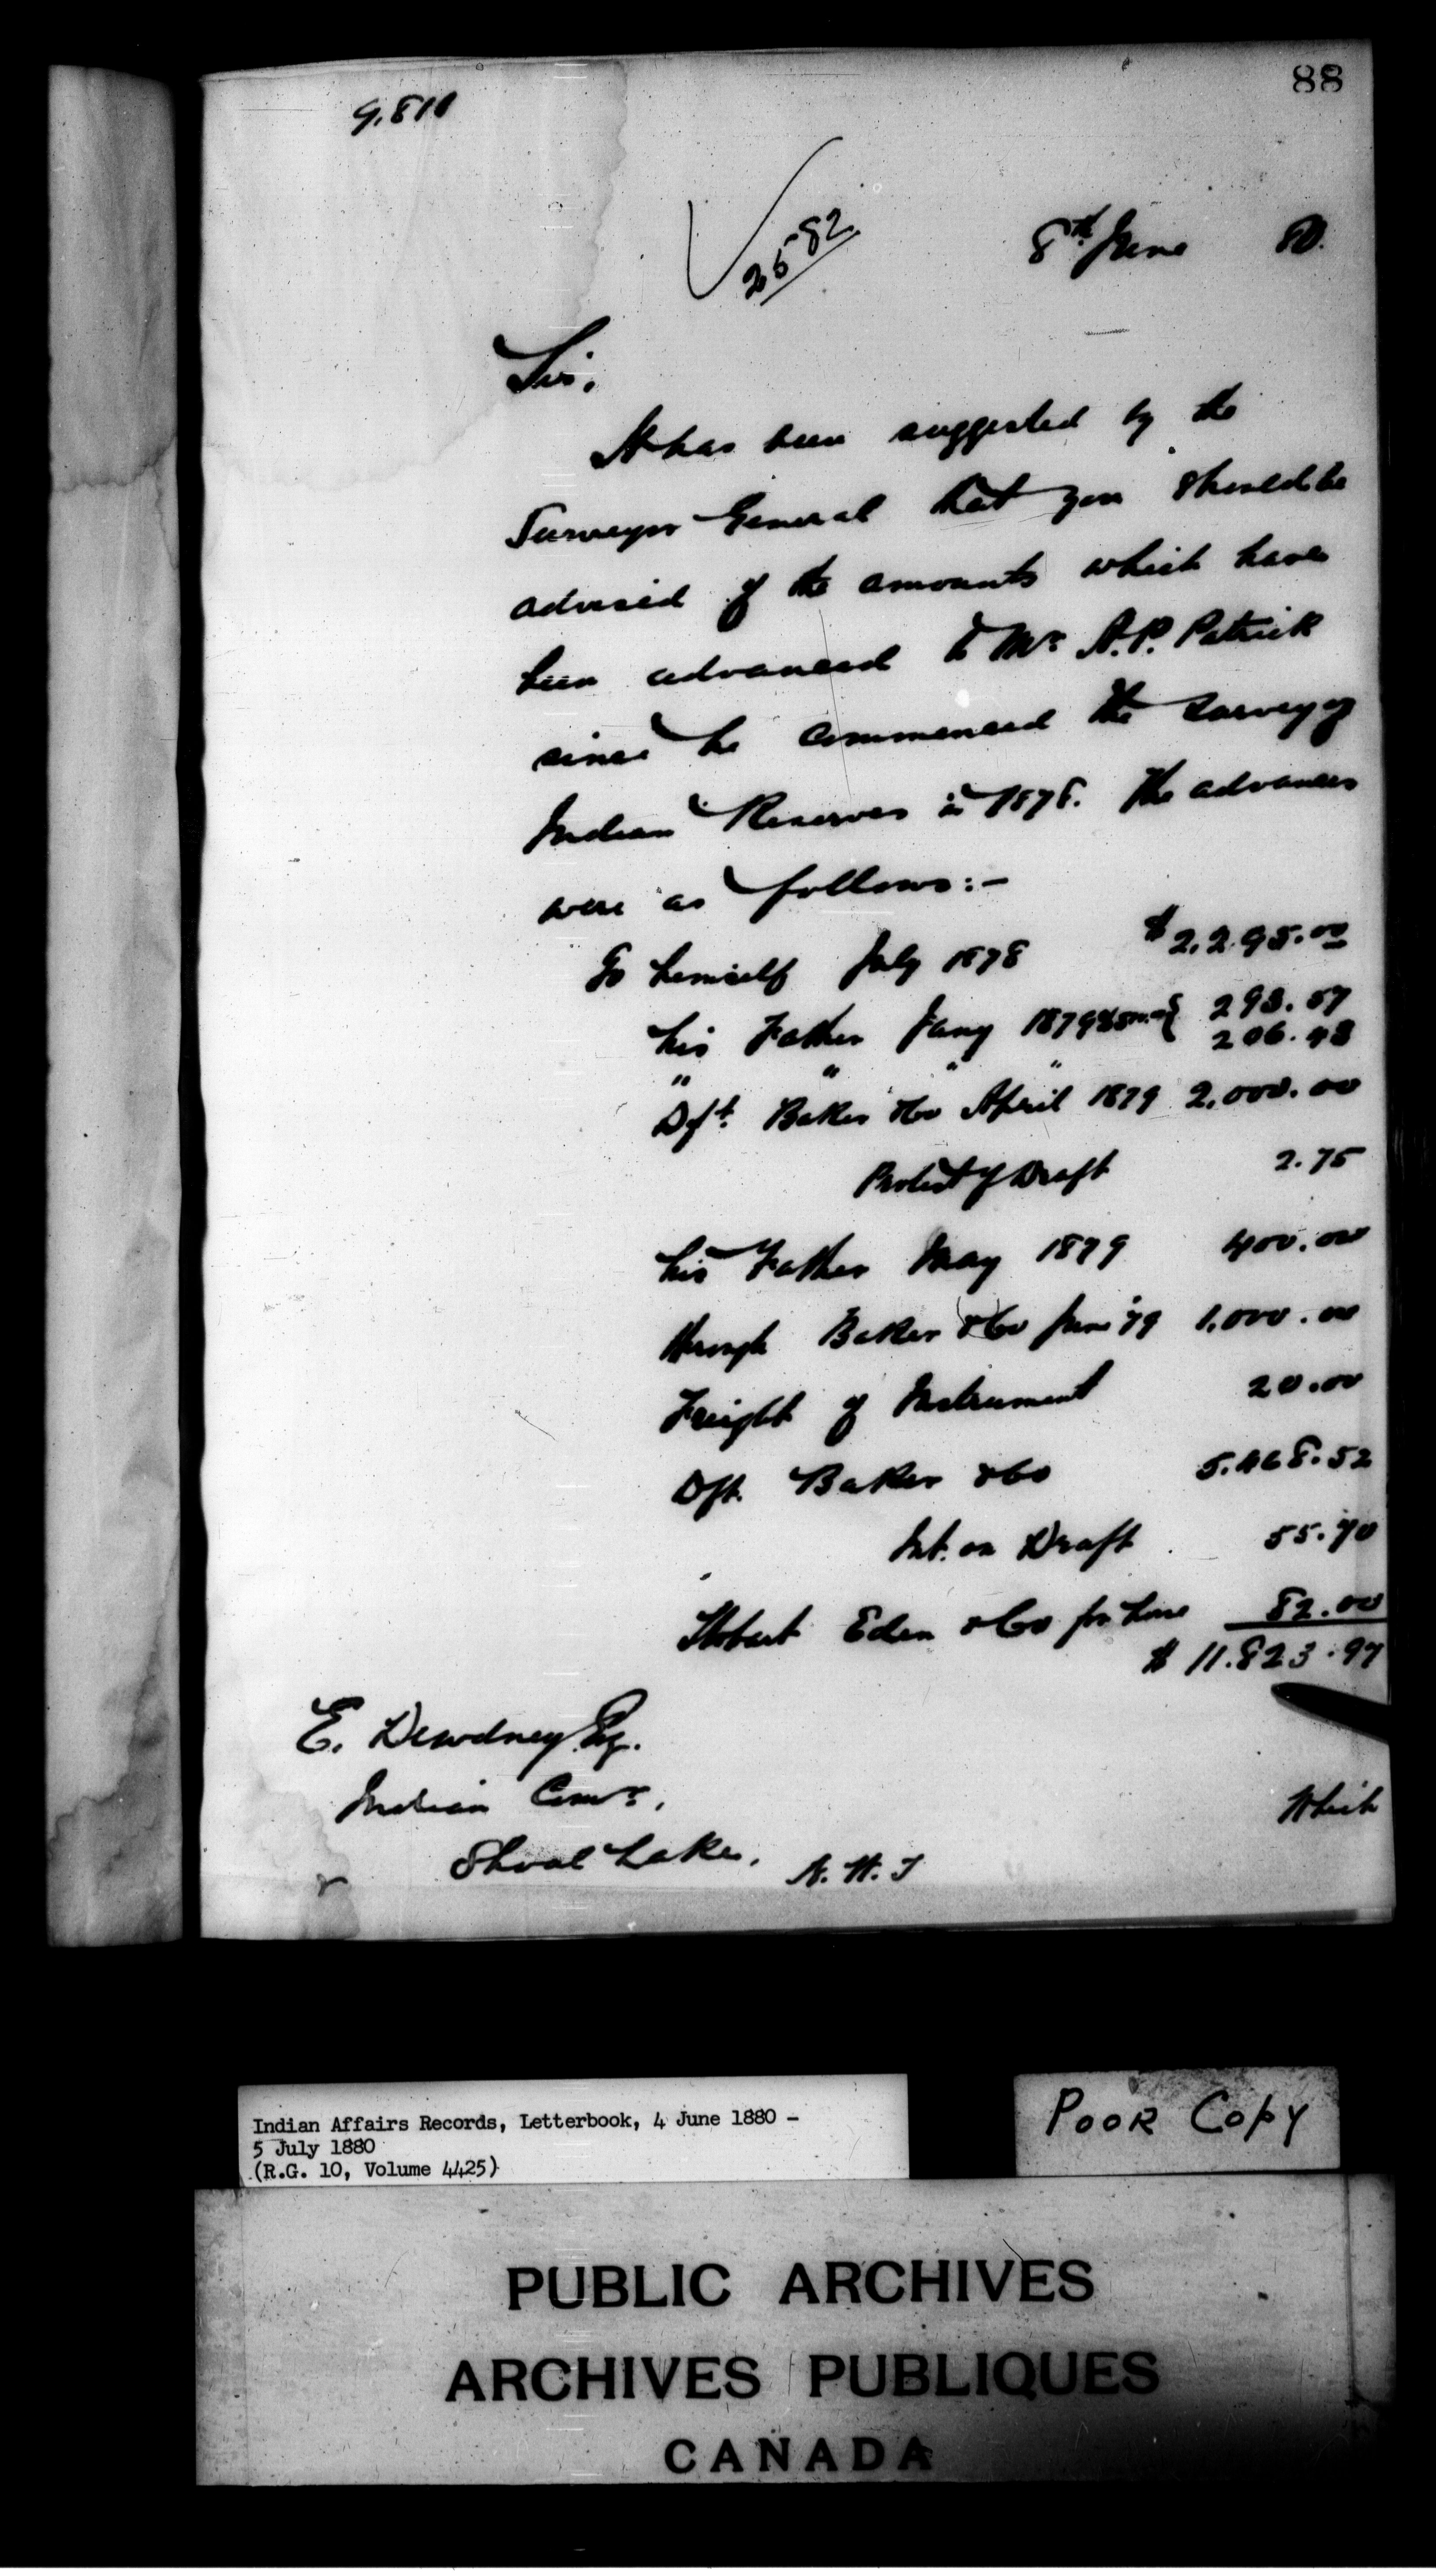 88
9,810
2582
8th June 80.
Sir,
It has been suggested by the
Surveyor General that you should be
advised of the amounts which have
been advanced to Mr A.P. Patrick
since he commenced the survey of
Indian Reserves in 1878. The advances
were as follows:-
To himself July 1878 $2,295.00
his Father Jany 1879 $500.00 { 293.57
" " " " 206.43
Dft. Baker &Co April 1879 2,000.00
Protest of Draft 2.75
his Father May 1879 400.00
through Baker &Co June '79 1,000.00
Freight of Instrument 20.00
Dft. Baker &Co 5,468.52
Int. on Draft 55.70
Stobart Eden &Co for horse 82.00
$ 11.823.97
E. Dewdney Esq.
Indian Comr.,
Shoal Lake, N.W.T
Which
Indian Affairs Records, Letterbook, 4 June 1880 -
5 July 1880
(R.G. 10, Volume 4425)
POOR COPY
PUBLIC ARCHIVES
ARCHIVES PUBLIQUES
CANADA